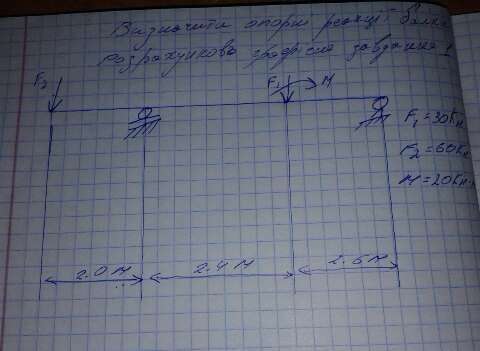 Визначити опорні реакції балки
розрахунково графічне завдання 1
F₂
F₁
M
F₁ = 30 Кн
F₂ = 60 Кн
M = 20 Кн
2.0 м
2.4 м
2.6 м